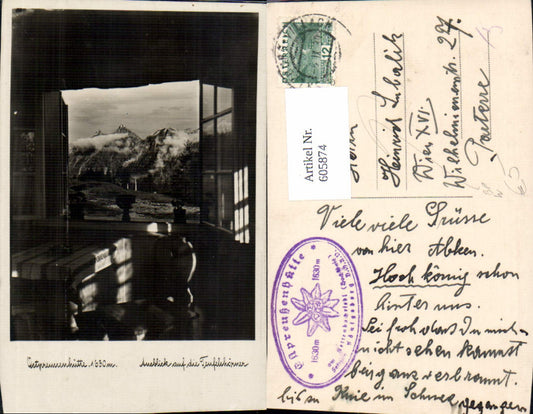 Ostpreussenhütte 1630m. Ausblick auf die Teufelshörner
12
Artikel Nr.
605874
Herrn
Heinrich
Wien XVI.
Wilhelminenstr. 27.
Parterre
Viele viele Grüsse
von hier Abken.
Hochkönig schon
hinter uns.
Sei froh dass Du mich
nicht sehen kannst
bin ganz verbrannt.
bis an Knie im Schnee gegangen
Ostpreußenhütte
1630m 1630m